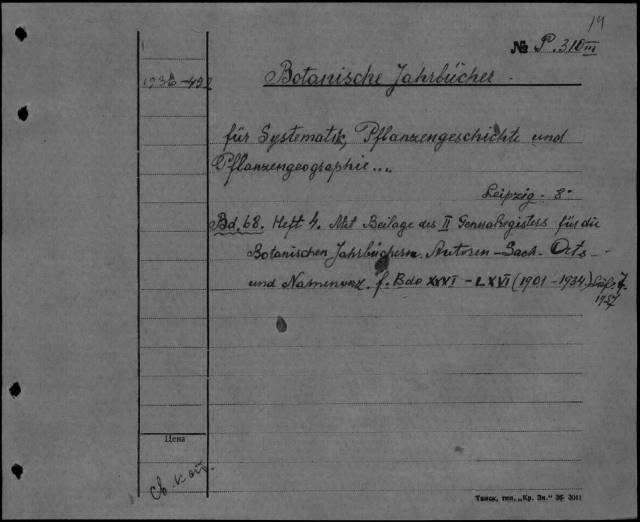 19
№ P. 310 III
1936–499
Botanische Jahrbücher.
für Systematik, Pflanzengeschichte und
Pflanzengeographie....
Leipzig. 8°
Bd. 68. Heft 4. Mit Beilage des II Generalregisters für die
Botanischen Jahrbüchern. Autoren – Sach – Orts –
und Namenverz. f. Bde XXXI – LXVI (1901 – 1934)
1937
Цена
Томск, тип. „Кр. Зн." 36 3011